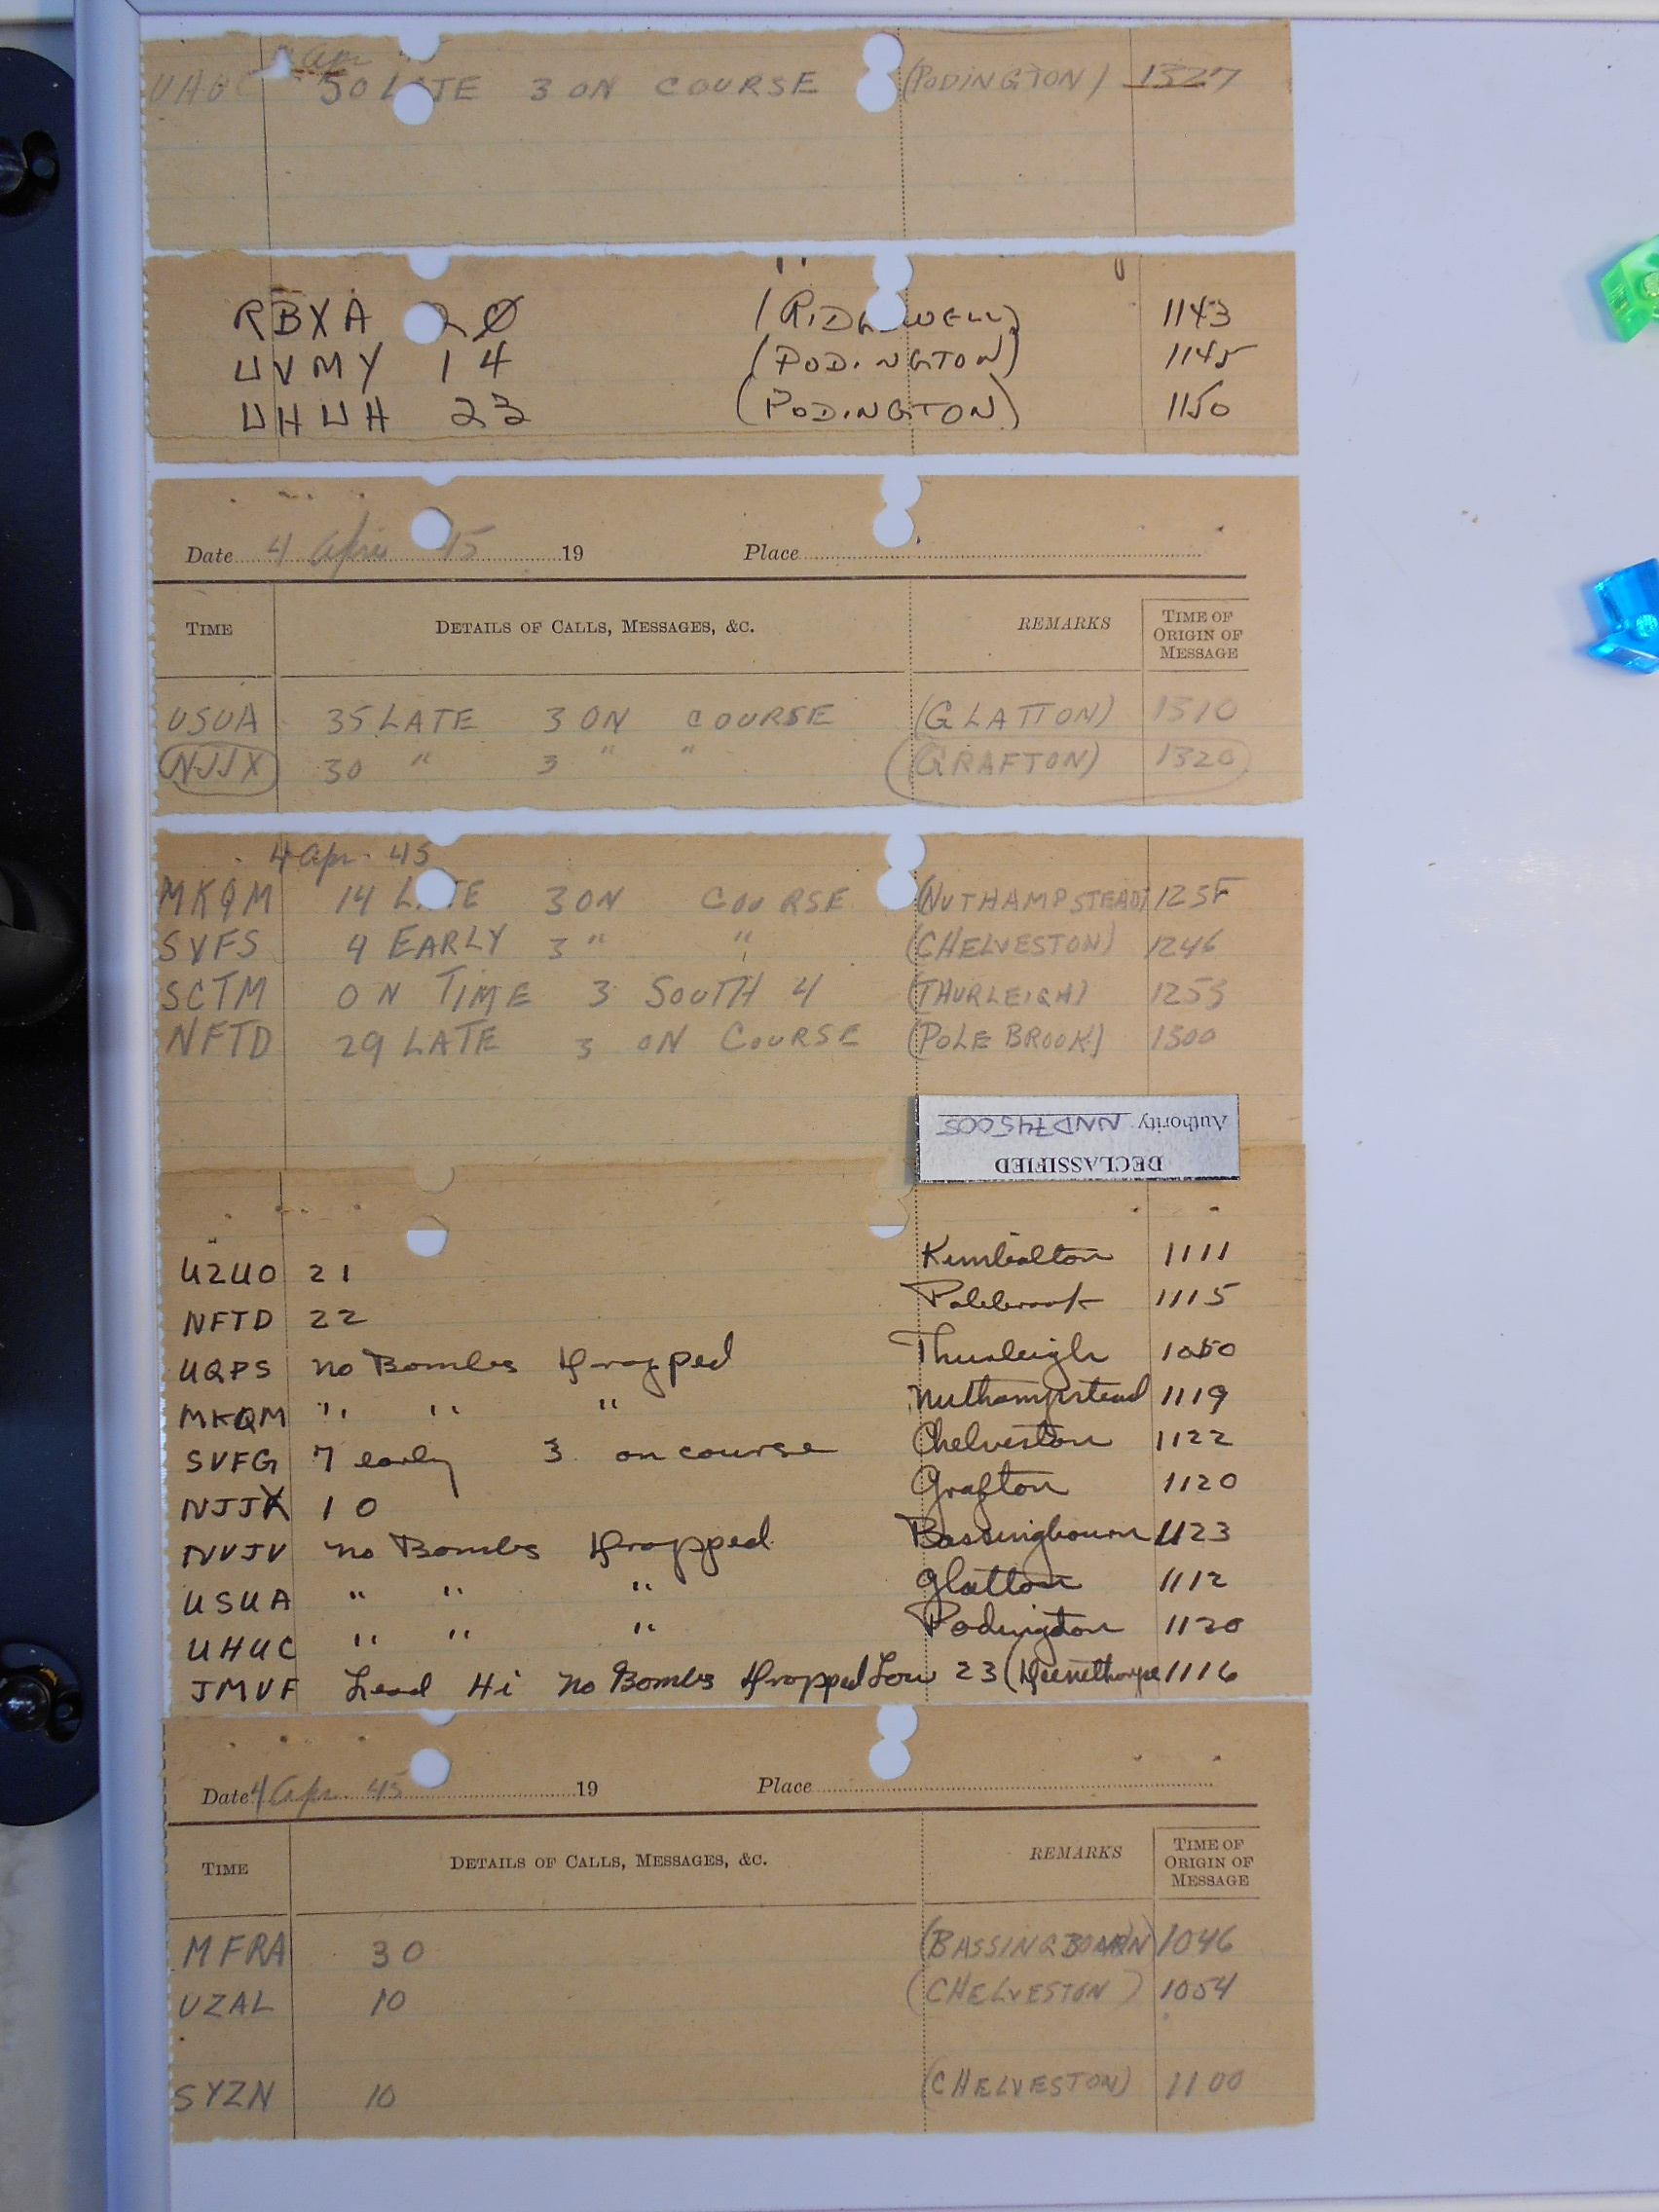 Apr
50 LATE 3 ON COURSE (PODINGTON) 1327
RBXA 20 (RIDGEWELL) 1143
UVMY 14 (PODINGTON) 1145
UHUH 23 (PODINGTON) 1150
Date 4 April 45 19 Place
TIME DETAILS OF CALLS, MESSAGES, &C. REMARKS TIME OF ORIGIN OF MESSAGE
USUA 35 LATE 3 ON COURSE (GLATTON) 1310
NJJX 30 " 3 " " (GRAFTON) 1320
4 Apr. 45
MKQM 14 LATE 3 ON COURSE (NUTHAMPSTEAD)
SVFS 4 EARLY 3 " " (CHELVESTON) 1246
SCTM ON TIME 3 SOUTH 4 (THURLEIGH) 1255
NFTD 29 LATE 3 ON COURSE (POLEBROOK) 1300
DECLASSIFIED
Authority NND745005
UZUO 21 Kimbolton 1111
NFTD 22 Polebrook 1115
UQPS no Bombs Dropped Thurleigh 1050
MKQM " " " Nuthampstead 1119
SVFG 7 early 3 on course Chelveston 1122
NJJX 10 Grafton 1120
NVJV no Bombs Dropped Bassingbourn 1123
USUA " " " Glatton 1112
UHUC " " " Podington 1120
JMVF Lead Hi no Bombs Dropped Low 23 (Deenethorpe 1116
Date 4 Apr. 45 19 Place
TIME DETAILS OF CALLS, MESSAGES, &C. REMARKS TIME OF ORIGIN OF MESSAGE
MFRA 30 (BASSINGBOURN) 1046
UZAL 10 (CHELVESTON) 1054
SYZN 10 (CHELVESTON) 1100